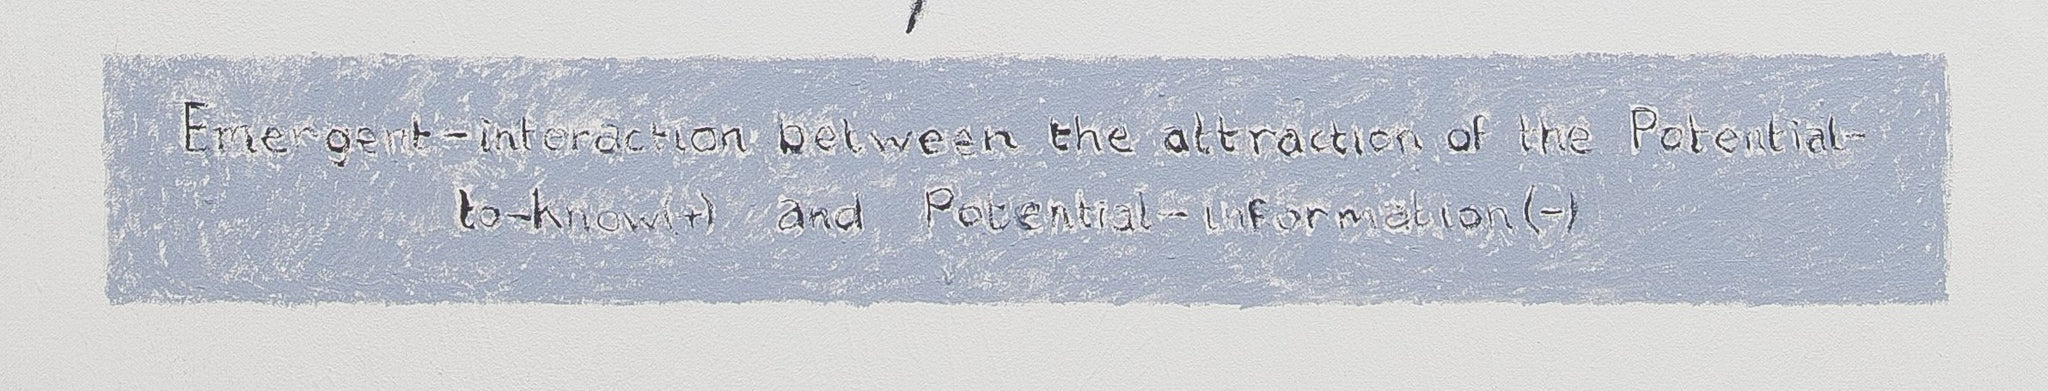 Emergent-interaction between the attraction of the Potential-
to-know(+) and Potential-information(-)